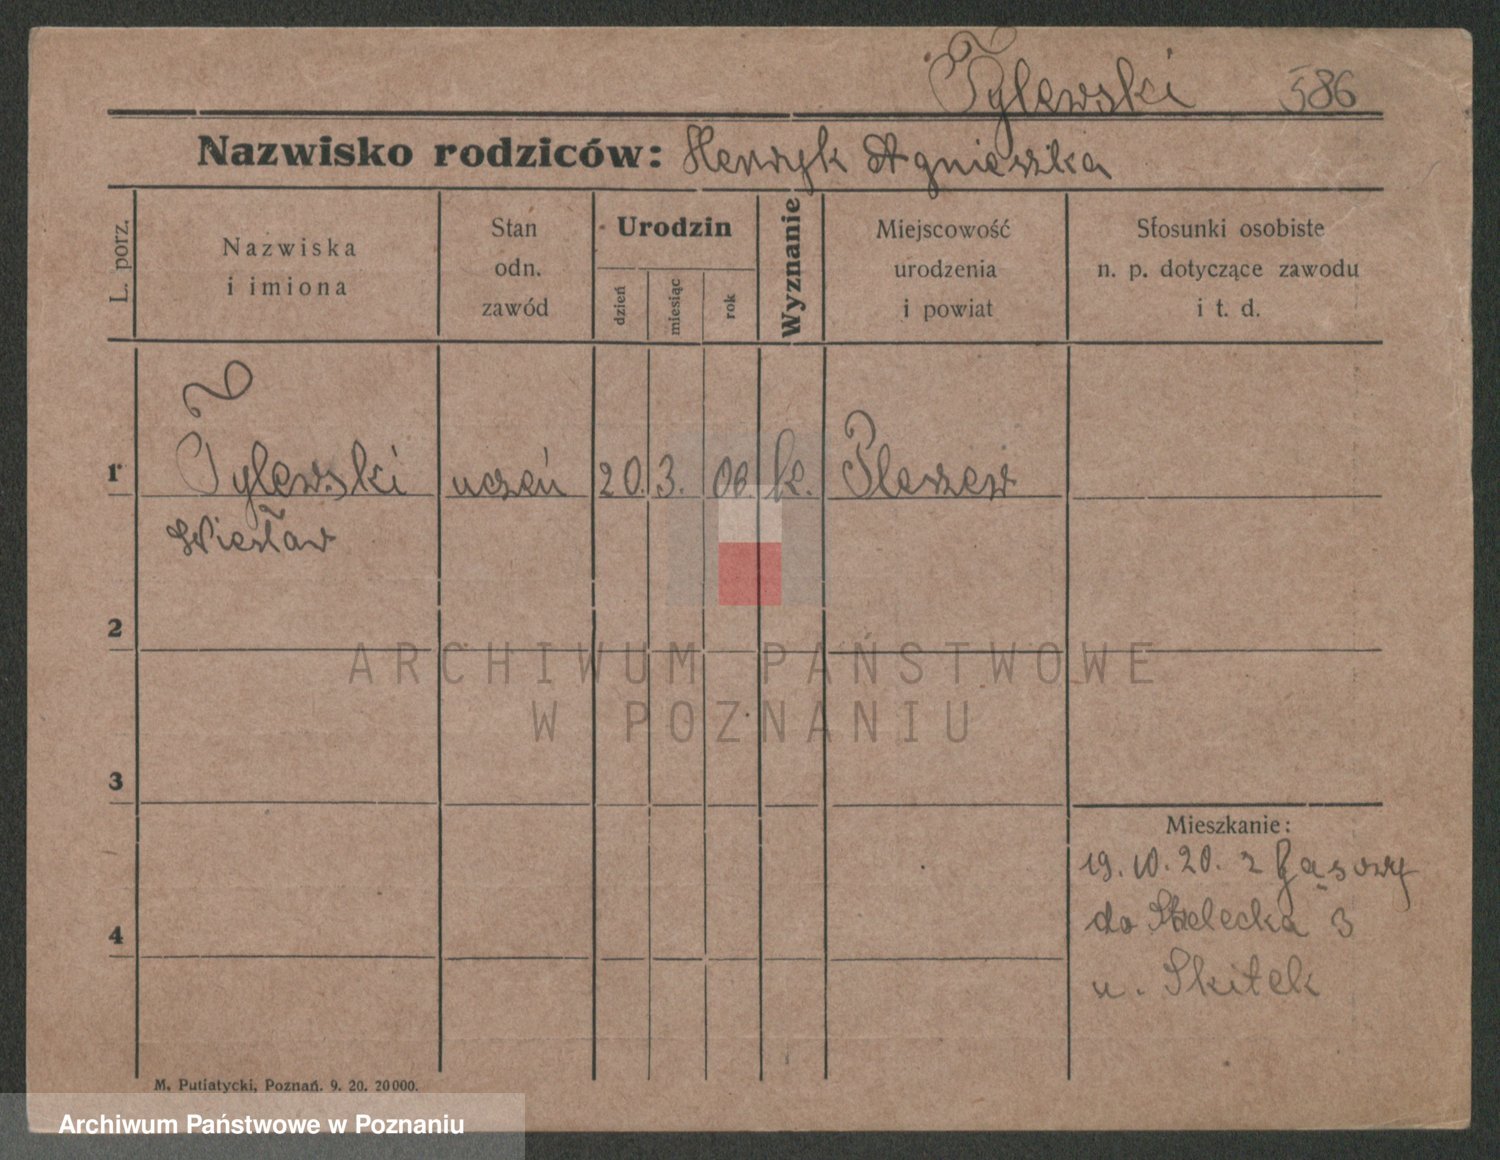 Tylewski 586
Nazwisko rodziców: Henryk Agnieszka
L. porz.
Nazwiska
i imiona
Stan
odn.
zawód
Urodzin
dzień
miesiąc
rok
Wyznanie
Miejscowość
urodzenia
i powiat
Stosunki osobiste
n. p. dotyczące zawodu
i t. d.
1 Tylewski uczeń 20. 3. 06 k. Pleszew
Wiesław
2
ARCHIWUM PAŃSTWOWE
W POZNANIU
3
Mieszkanie:
19.10.20. z
do 3
4
u. Skitek
M. Putiatycki, Poznań. 9. 20. 20000.
Archiwum Państwowe w Poznaniu